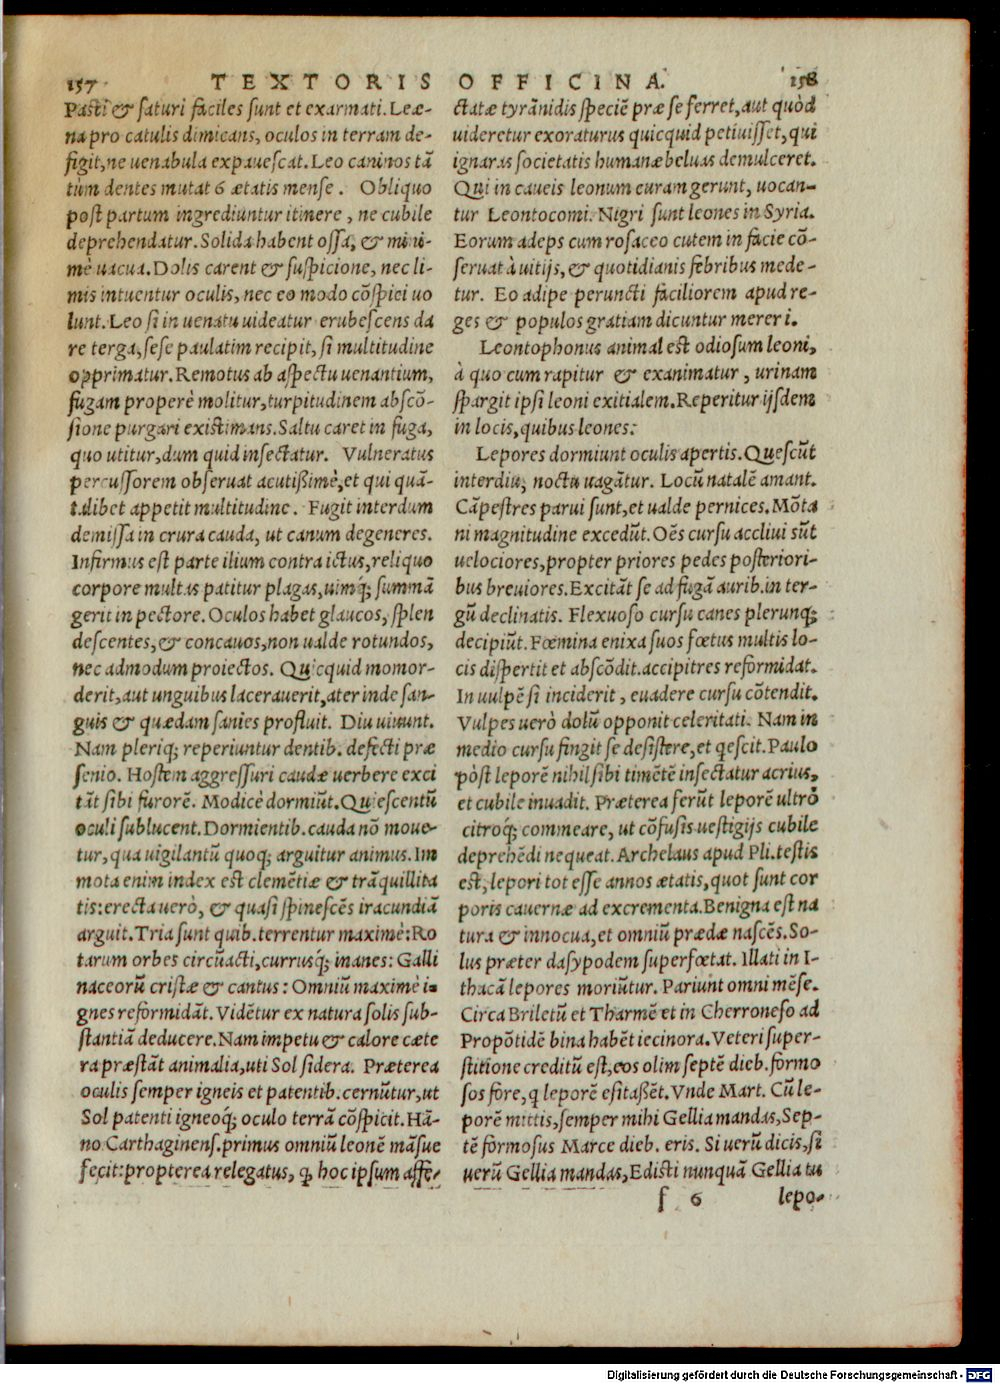 157 TEXTORIS OFFICINA. 158
Pasti & saturi faciles sunt et exarmati. Leæ-
na pro catulis dimicans, oculos in terram de-
figit, ne uenabula expauescat. Leo caninos tā
tùm dentes mutat 6 ætatis mense. Obliquo
post partum ingrediuntur itinere, ne cubile
deprehendatur. Solida habent ossa, & mini-
mè uacua. Dolis carent & suspicione, nec li-
mis intuentur oculis, nec eo modo cōspici uo
lunt. Leo si in uenatu uideatur erubescens da
re terga, sese paulatim recipit, si multitudine
opprimatur. Remotus ab aspectu uenantium,
fugam properè molitur, turpitudinem abscō-
sione purgari existimans. Saltu caret in fuga,
quo utitur, dum quid insectatur. Vulneratus
percussorem obseruat acutißimè, et qui quā-
talibet appetit multitudine. Fugit interdum
demissa in crura cauda, ut canum degeneres.
Infirmus est parte ilium contra ictus, reliquo
corpore multas patitur plagas, uimq́; summā
gerit in pectore. Oculos habet glaucos, splen
descentes, & concauos, non ualde rotundos,
nec admodum proiectos. Quicquid momor-
derit, aut unguibus lacerauerit, ater inde san-
guis & quædam sanies profluit. Diu uiuunt.
Nam pleriq; reperiuntur dentib. defecti præ
senio. Hostem aggressuri caudæ uerbere exci
tāt sibi furorē. Modicè dormiūt. Quiescentū
oculi sublucent. Dormientib. cauda nō moue-
tur, qua uigilantū quoq; arguitur animus. Im
mota enim index est clemētiæ & trāquillita
tis: erecta uerò, & quasi spinescēs iracundiā
arguit. Tria sunt quib. terrentur maximè: Ro
tarum orbes circūacti, currusq́; inanes: Galli
naceorū cristæ & cantus: Omniū maximè i-
gnes reformidāt. Vidētur ex natura solis sub-
stantiā deducere. Nam impetu & calore cæte
ra præstāt animalia, uti Sol sidera. Præterea
oculis semper igneis et patentib. cernūtur, ut
Sol patenti igneoq́; oculo terrā cōspicit. Hā-
no Carthaginens. primus omniū leonē māsue
fecit: propterea relegatus, ꝙ hoc ipsum affe-
ctatæ tyrānidis speciē præ se ferret, aut quòd
uideretur exoraturus quicquid petiuisset, qui
ignaras societatis humanæ beluas demulceret.
Qui in caueis leonum curam gerunt, uocan-
tur Leontocomi. Nigri sunt leones in Syria.
Eorum adeps cum rosaceo cutem in facie cō-
seruat à uitijs, & quotidianis febribus mede-
tur. Eo adipe peruncti faciliorem apud re-
ges & populos gratiam dicuntur mereri.
Leontophonus animal est odiosum leoni,
à quo cum rapitur & exanimatur, urinam
spargit ipsi leoni exitialem. Reperitur ijsdem
in locis, quibus leones:
Lepores dormiunt oculis apertis. Quescūt
interdiu, noctu uagātur. Locū natalē amant.
Cāpestres parui sunt, et ualde pernices. Mōta
ni magnitudine excedūt. Oēs cursu accliui sūt
uelociores, propter priores pedes posteriori-
bus breuiores. Excitāt se ad fugā aurib. in ter-
gū declinatis. Flexuoso cursu canes plerunq;
decipiūt. Fœmina enixa suos fœtus multis lo-
cis dispertit et abscōdit. accipitres reformidat.
In uulpē si inciderit, euadere cursu cōtendit.
Vulpes uerò dolū opponit celeritati. Nam in
medio cursu fingit se desistere, et qescit. Paulo
pòst leporē nihil sibi timētē insectatur acrius,
et cubile inuadit. Præterea ferūt leporē ultrò
citroq́; commeare, ut cōfusis uestigijs cubile
deprehēdi nequeat. Archelaus apud Pli. testis
est, lepori tot esse annos ætatis, quot sunt cor
poris cauernæ ad excrementa. Benigna est na
tura & innocua, et omniū prædæ nascēs. So-
lus præter dasypodem superfœtat. Illati in I-
thacā lepores moriūtur. Pariunt omni mēse.
Circa Briletū et Tharmē et in Cherroneso ad
Propōtidē bina habēt iecinora. Veteri super-
stitione creditū est, eos olim septē dieb. formo
sos fore, q leporē esitaßēt. Vnde Mart. Cū le-
porē mittis, semper mihi Gellia mandas, Sep-
tē formosus Marce dieb. eris. Si uerū dicis, si
uerū Gellia mandas, Edisti nunquā Gellia tu
f 6 lepo-
Digitalisierung gefördert durch die Deutsche Forschungsgemeinschaft - DFG